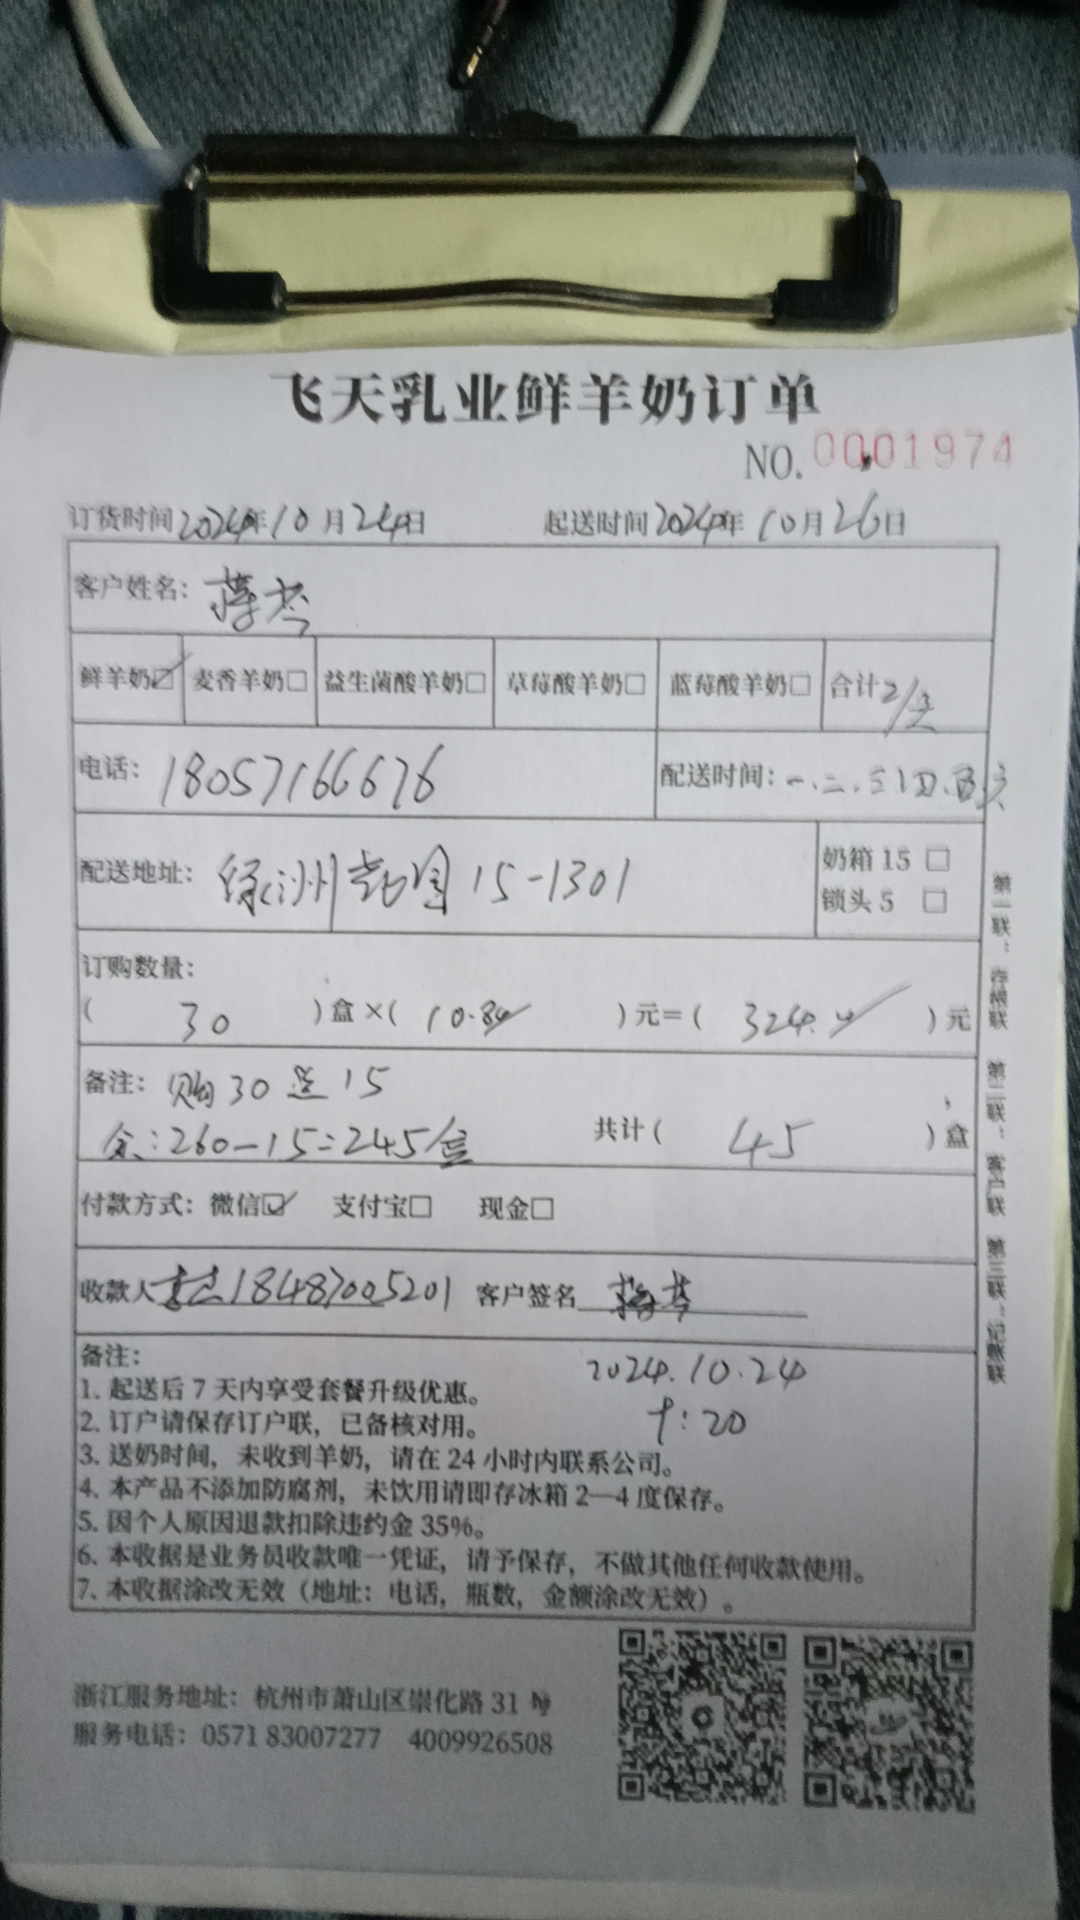 飞天乳业鲜羊奶订单
NO. 0001974
订货时间2024年10月24日 起送时间2024年10月26日
客户姓名：蒋芩
鲜羊奶☑ 麦香羊奶□ 益生菌酸羊奶□ 草莓酸羊奶□ 蓝莓酸羊奶□ 合计2/天
电话：18057166676 配送时间：一、二、三、四、五、六
配送地址：绿洲花园15-1301 奶箱 15 □
锁头 5 □
订购数量：
( 30 ) 盒 ×( 10.8 ) 元＝( 324. ) 元
备注：购30送15
余：260-15=245盒 共计( 45 ) 盒
付款方式：微信☑ 支付宝□ 现金□
收款人 18487005201 客户签名
备注：
2024.10.24
1. 起送后 7 天内享受套餐升级优惠。
2. 订户请保存订户联，已备核对用。
:20
3. 送奶时间，未收到羊奶，请在 24 小时内联系公司。
4. 本产品不添加防腐剂，未饮用请即存冰箱 2—4 度保存。
5. 因个人原因退款扣除违约金 35%。
6. 本收据是业务员收款唯一凭证，请予保存，不做其他任何收款使用。
7. 本收据涂改无效（地址：电话，瓶数，金额涂改无效）。
第一联：存根联 第二联：客户联 第三联：记账联
浙江服务地址：杭州市萧山区崇化路 31 号
服务电话：0571 83007277 4009926508